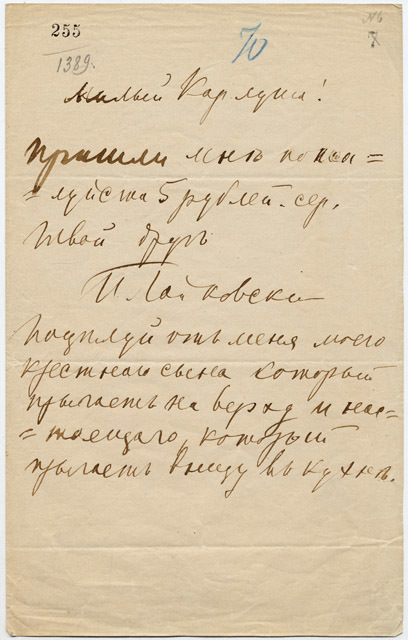 255
70
1389.
Милый Карлуша!
Пришли мнѣ пожа=
=луйста 5 рублей. сер.
Твой другъ
П Чайковски
Поцѣлуй отъ меня моего
крестнаго сына который
прыгаетъ на верху и нас=
=тоящаго, который
прыгаетъ внизу въ кухнѣ.